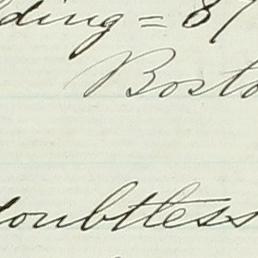 ding = 87
Bosto
doubtless